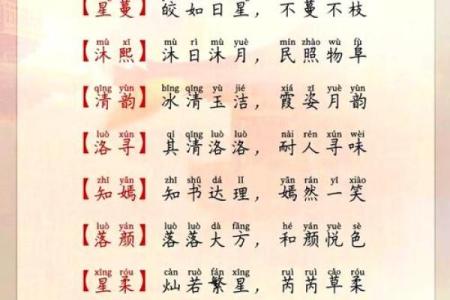 【星蔓】皎如日星，不蔓不枝
mù xī mù rì mù yuè mín zhào wù fù
【沐熙】沐日沐月，民照物阜
qīng yùn bīng qīng yù jié xiá zī yuè yùn
【清韵】冰清玉洁，霞姿月韵
luò xún qí qīng luò luò nài rén xún wèi
【洛寻】其清洛洛，耐人寻味
zhī yān zhī shū dá lǐ yān rán yī xiào
【知嫣】知书达理，嫣然一笑
luò yán luò luò dà fāng hé yán yuè sè
【落颜】落落大方，和颜悦色
xīng róu càn ruò fán xīng ruì ruì cǎo róu
【星柔】灿若繁星，芮芮草柔